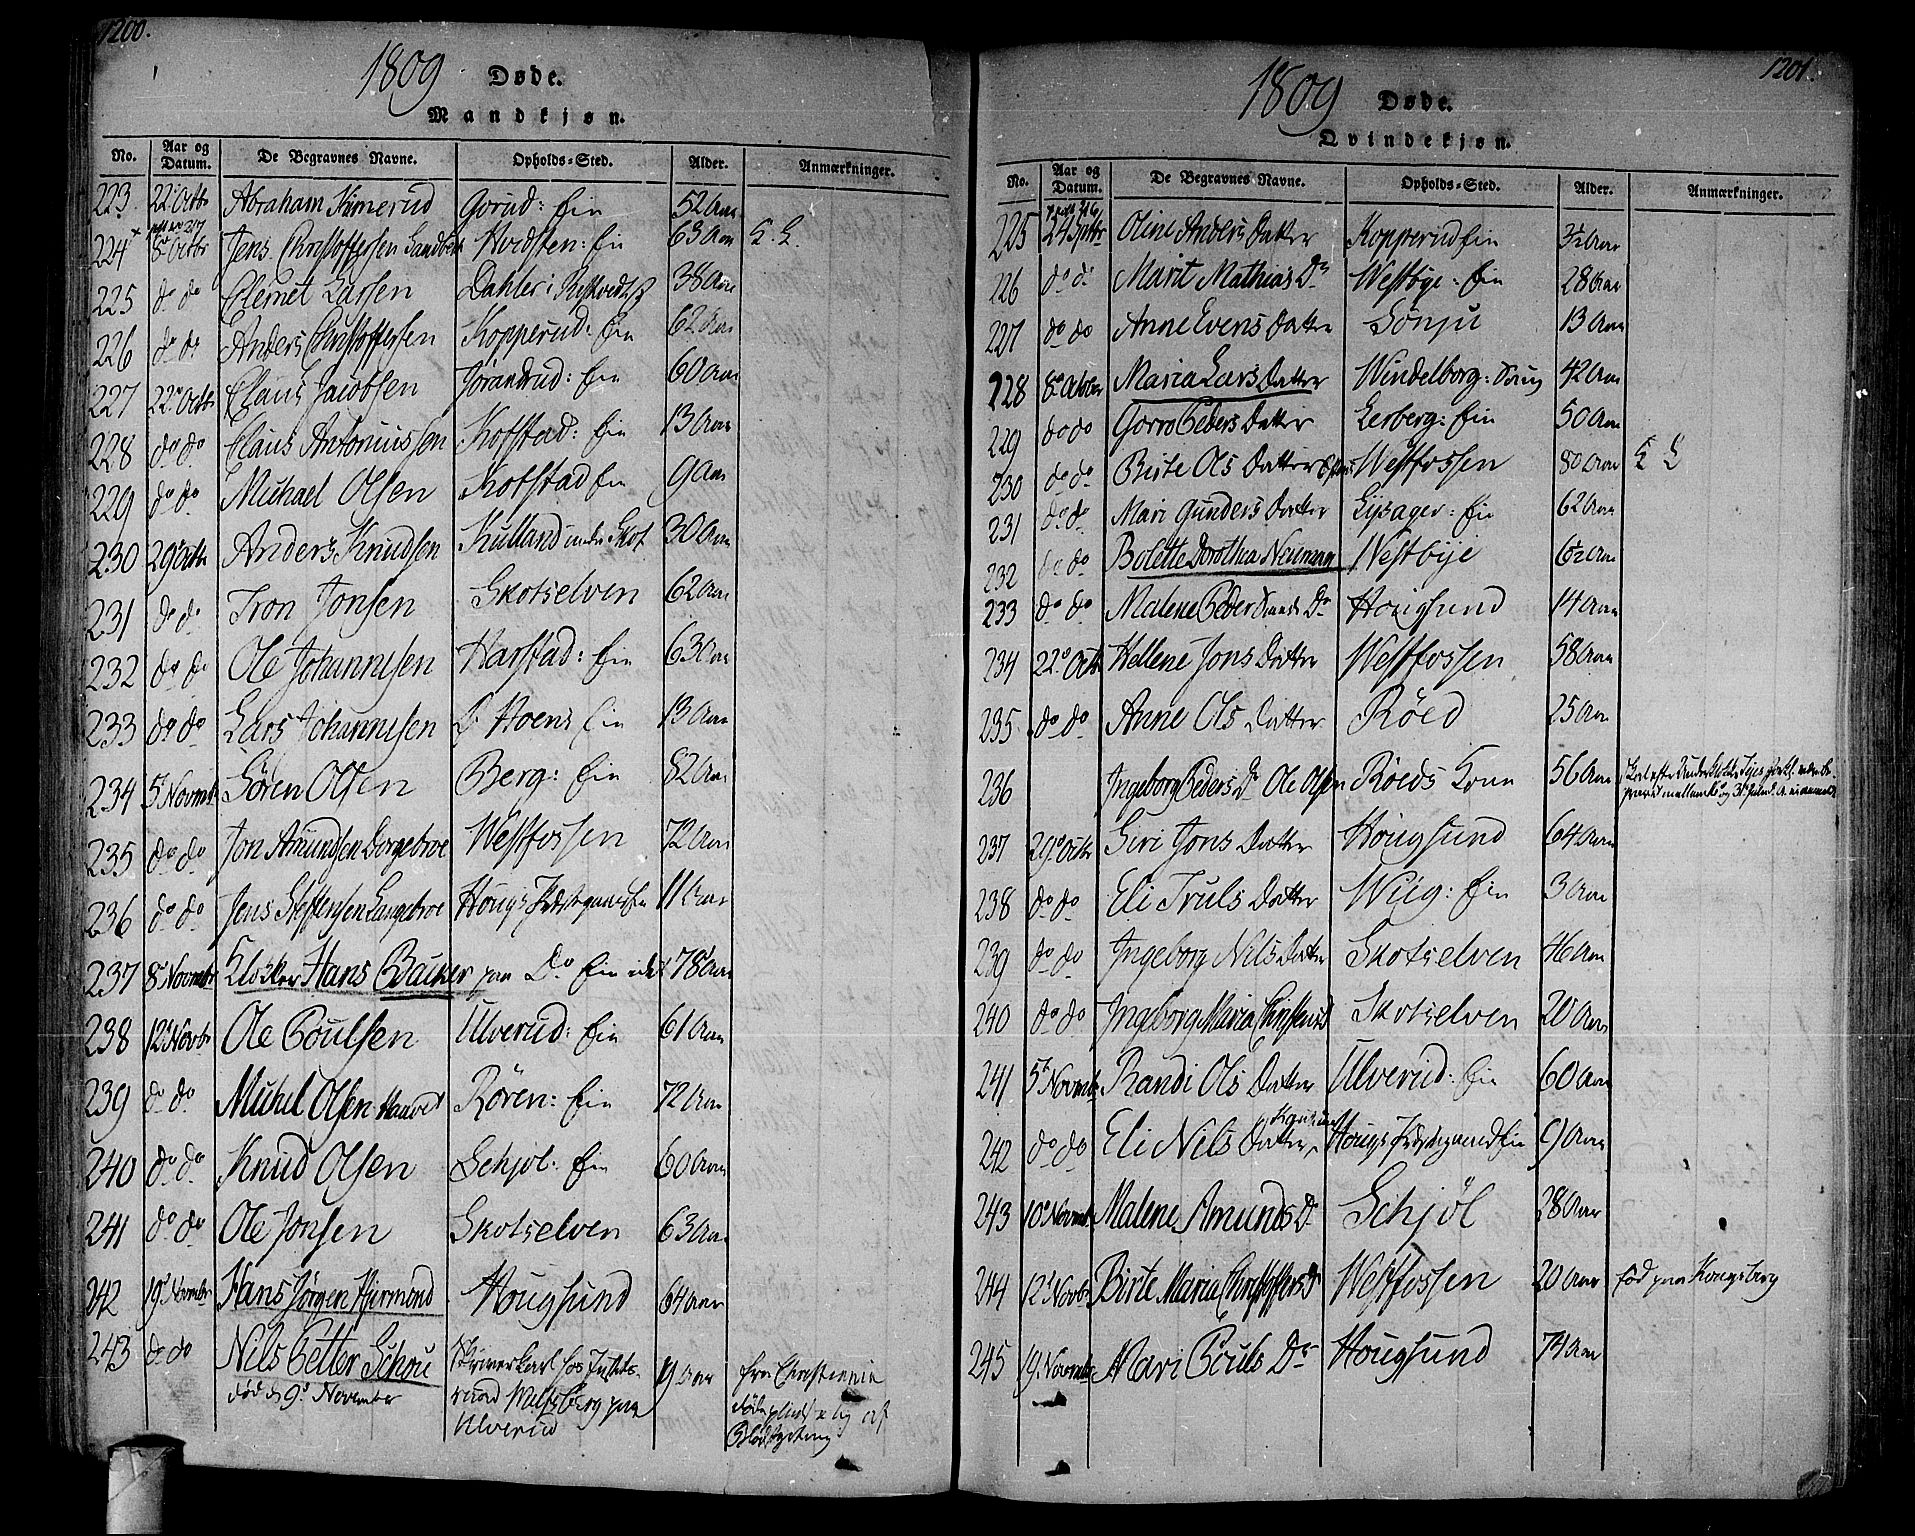 1200.
1809 Døde.
Mandkjøn.
No. Aar og Datum. De Begravnes Navne. Opholds=Sted. Alder. Anmærkninger.
223 22 Octbr Abraham Kimerud Gorud: Ein 52 Aar
224 8de Octbr Jens Christoffersen Hvidsten: Ein 63 Aar
225 do do Clemet Larsen Dahler i 38 Aar
226 do do Anders Christoffersen Kopperud: Ein 62 Aar
227 22 Octbr Claus Jacobsen Jørandrud: Ein 60 Aar
228 do do Claus Antoniussen Kofstad: Ein 13 Aar
229 do do Michael Olsen Kofstad Ein 9 Aar
230 29 Octbr Anders Knudsen under Skot. 30 Aar
231 do do Tron Jonsen Skotselven 62 Aar
232 do do Ole Johannesen Harstad: Ein 63 Aar
233 do do Lars Johannesen Hoens Ein 13 Aar
234 5 Novmb Søren Olsen Berg: Ein 82 Aar
235 do do Jon Amundsen Dorgebroe Westfossen 72 Aar
236 do do Jens Steffensen Langebroe Hougs Præstegaard Ein 11 Aar
237 8 Novmbr Klokker Hans Bauker paa Do Ein 78 Aar
238 12 Novbr Ole Poulsen Ulverud: Ein 61 Aar
239 do do Michel Olsen Røren: Ein 72 Aar
240 do do Knud Olsen Schjøl: Ein 60 Aar
241 do do Ole Jonsen Skotselven 63 Aar
242 19 Novmbr Hans Jørgen Hiermond Hougsund 64 Aar
243 do do Nils Petter Schou Skriverkarl hos Justits- 19 Aar fra Christiania
død d 9 November raad paa
Ulverud
Blodstyrtning
1201.
1809 Døde.
Qvindekjøn.
No. Aar og Datum. De Begravnes Navne. Opholds=Sted. Alder. Anmærkninger.
225 24 Septbr Oline Anders Datter Kopperud Ein 3½ Aar
226 do do Marit Mathias Dr Westbye: Ein 28 Aar
227 do do Anne Evens Datter Sønju 13 Aar
228 8 Octobr Maria Lars Datter Windelborg: 42 Aar
229 do do Gorro Peders Datter Lerberg: Ein 50 Aar
230 do do Birte Ols Datter Westfossen 80 Aar
231 do do Mari Gunders Datter Lysager: Ein 62 Aar
232 do do Bolette Dorothea Neumann Westbye 6½ Aar
233 do do Malene Peder Dr Hougsund 14 Aar
234 22 Octbr Hellene Jons Datter Westfossen 58 Aar
235 do do Anne Ols Datter Røed 25 Aar
236 Ingeborg Peders Dr Ole Olsen Røeds Kone 56 Aar
237 29 Octbr Siri Jons Datter Hougsund 64 Aar
238 do do Eli Truls Datter Wiig: Ein 3 Aar
239 do do Ingeborg Nils Datter Skotselven 46 Aar
240 do do Ingeborg Maria Skotselven 20 Aar
241 5 Novmbr Randi Ols Datter Ulverud: Ein 60 Aar
242 do do Eli Nils Datter Hougs Præstegaard Ein 9 Aar
243 10 Novmbr Malene Amunds Dr Schjøl 28 Aar
244 12 Novbr Birte Maria Christoffers Dr Westfossen 20 Aar fød paa Kongsberg
245 19 Novmbr Mari Pouls Dr Hougsund 74 Aar